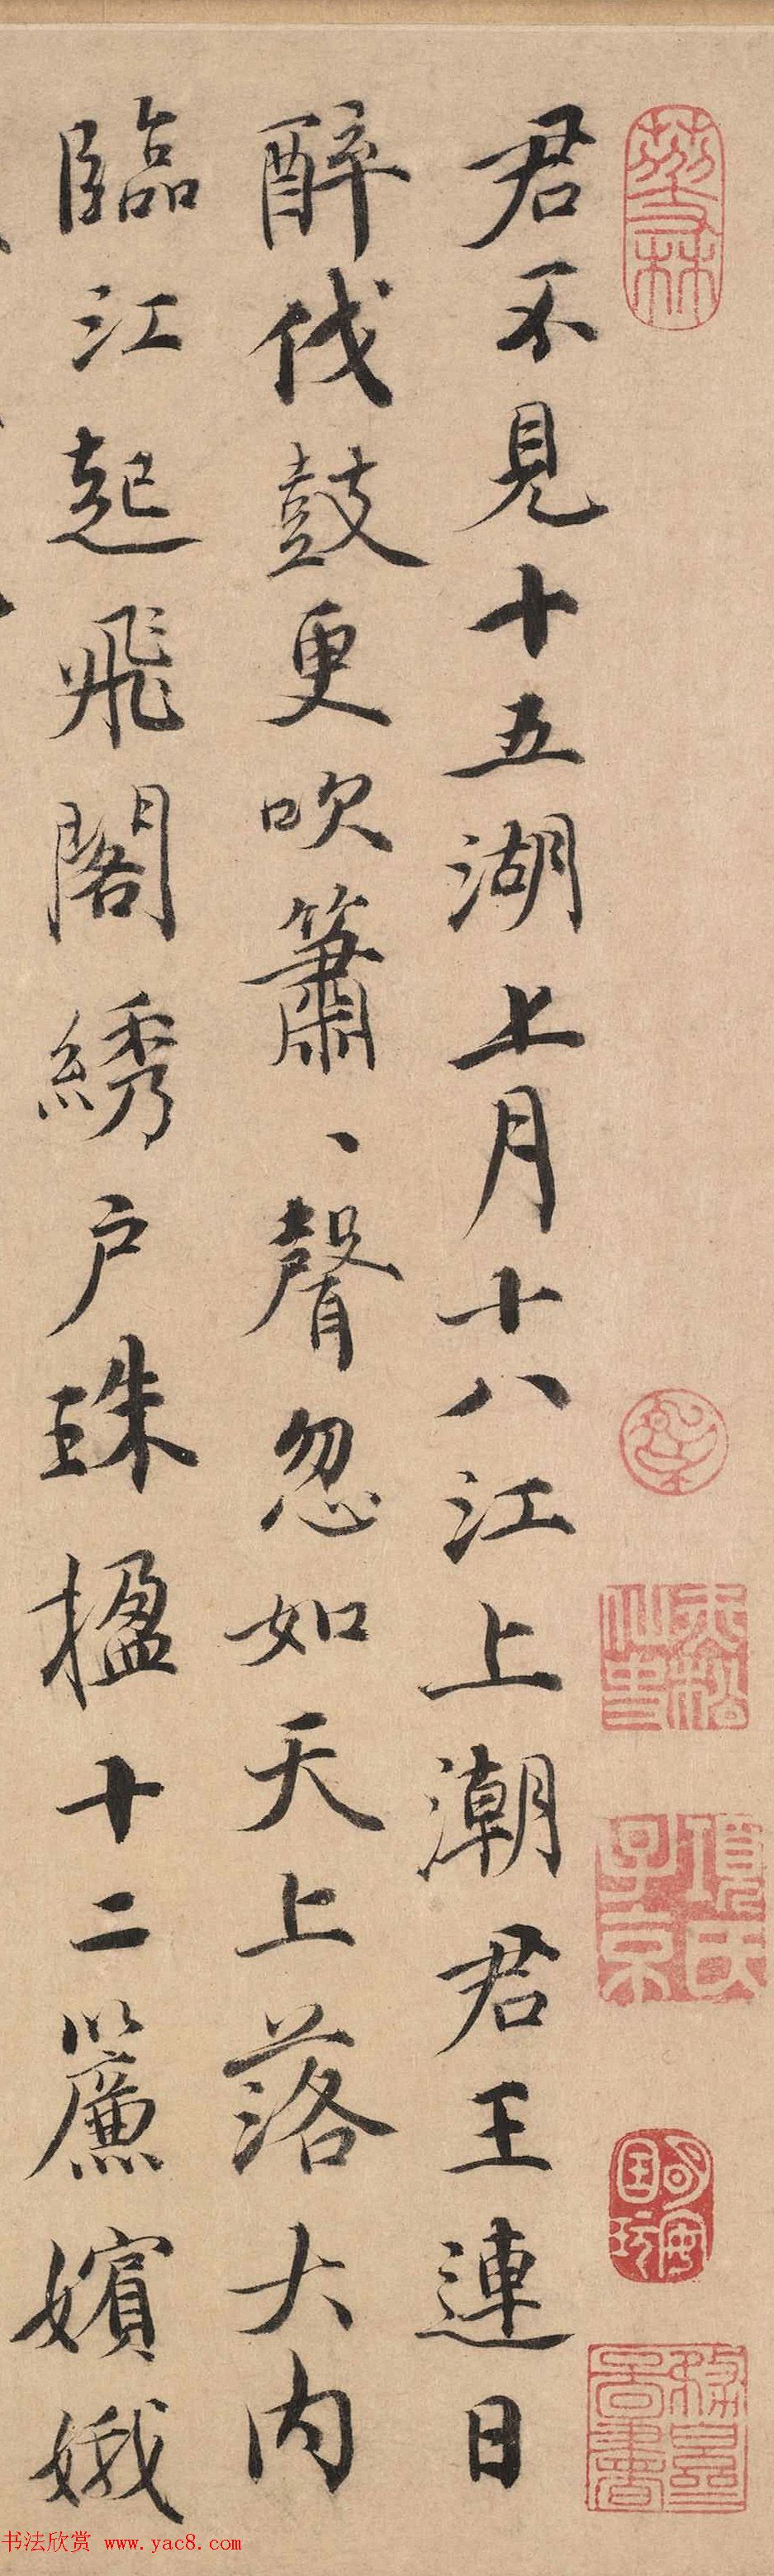 君不見十五湖上月十八江上潮君王連日
醉伐鼓更吹簫、聲忽如天上落大内
臨江起飛閣綉户珠楹十二簾嬪娥
項氏子京
書法欣赏 www.yac8.com